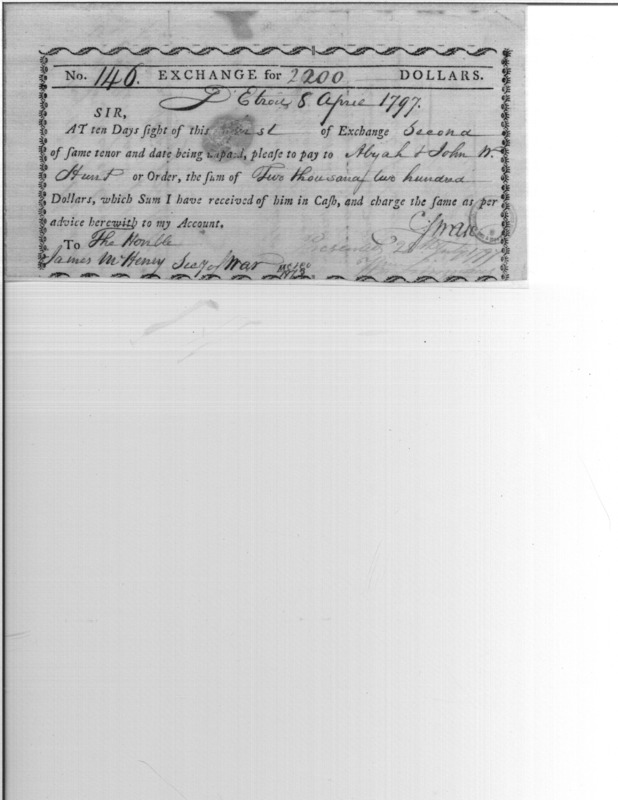 No. 146. EXCHANGE for 2200 DOLLARS.
D'Etroit 8 April 1797.
SIR,
AT ten Days sight of this First of Exchange Second
of same tenor and date being unpaid, please to pay to Abijah & John W.
Hunt or Order, the sum of Two thousand two hundred
Dollars, which Sum I have received of him in Cash, and charge the same as per
advice herewith to my Account.
To The Honble
James McHenry Secy of War